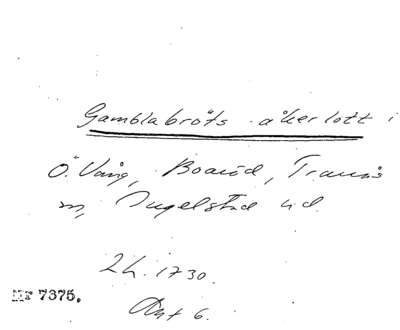 Gamblabröts åkerlott i
Ö. Vång, Boaröd, Tranås
m, Ingelstad hd.
2 h. 1730.
Akt 6.
Nr 7375.